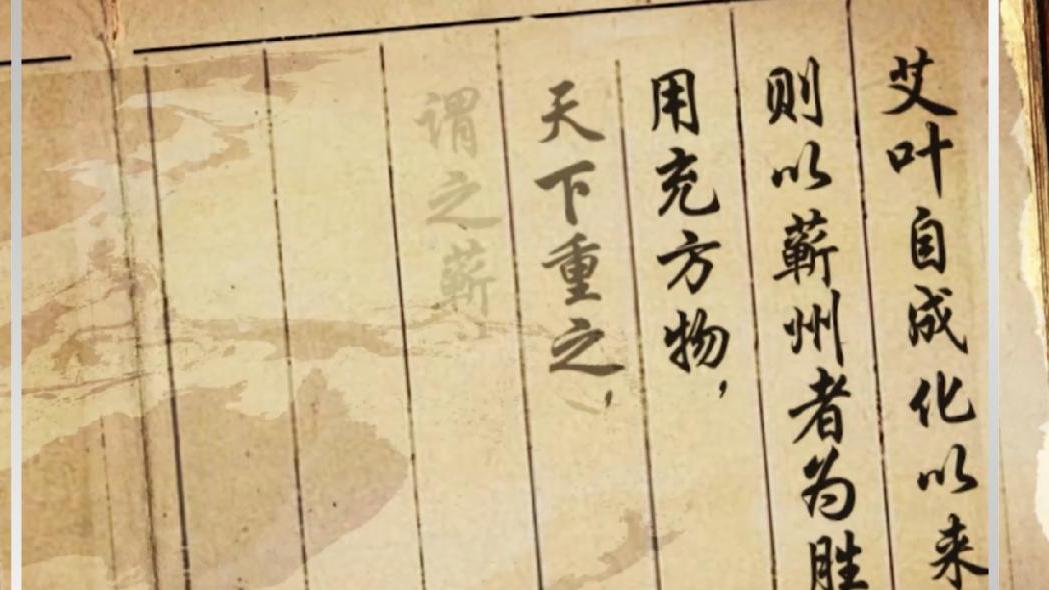 艾叶自成化以来
则以蕲州者为胜
用充方物，
天下重之，
谓之蕲